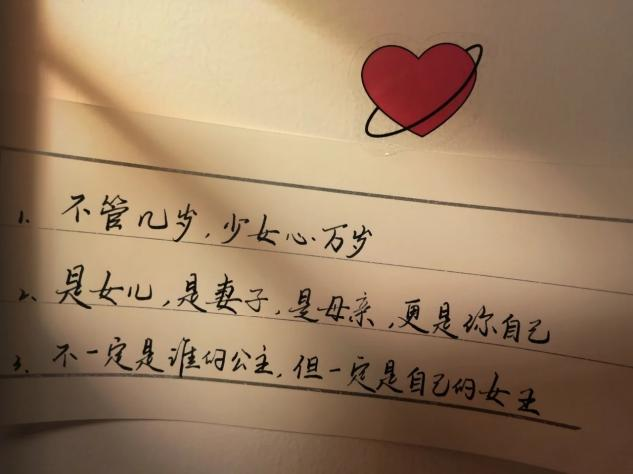 1、不管几岁，少女心万岁
2、是女儿，是妻子，是母亲，更是你自己
3、不一定是谁的公主，但一定是自己的女王